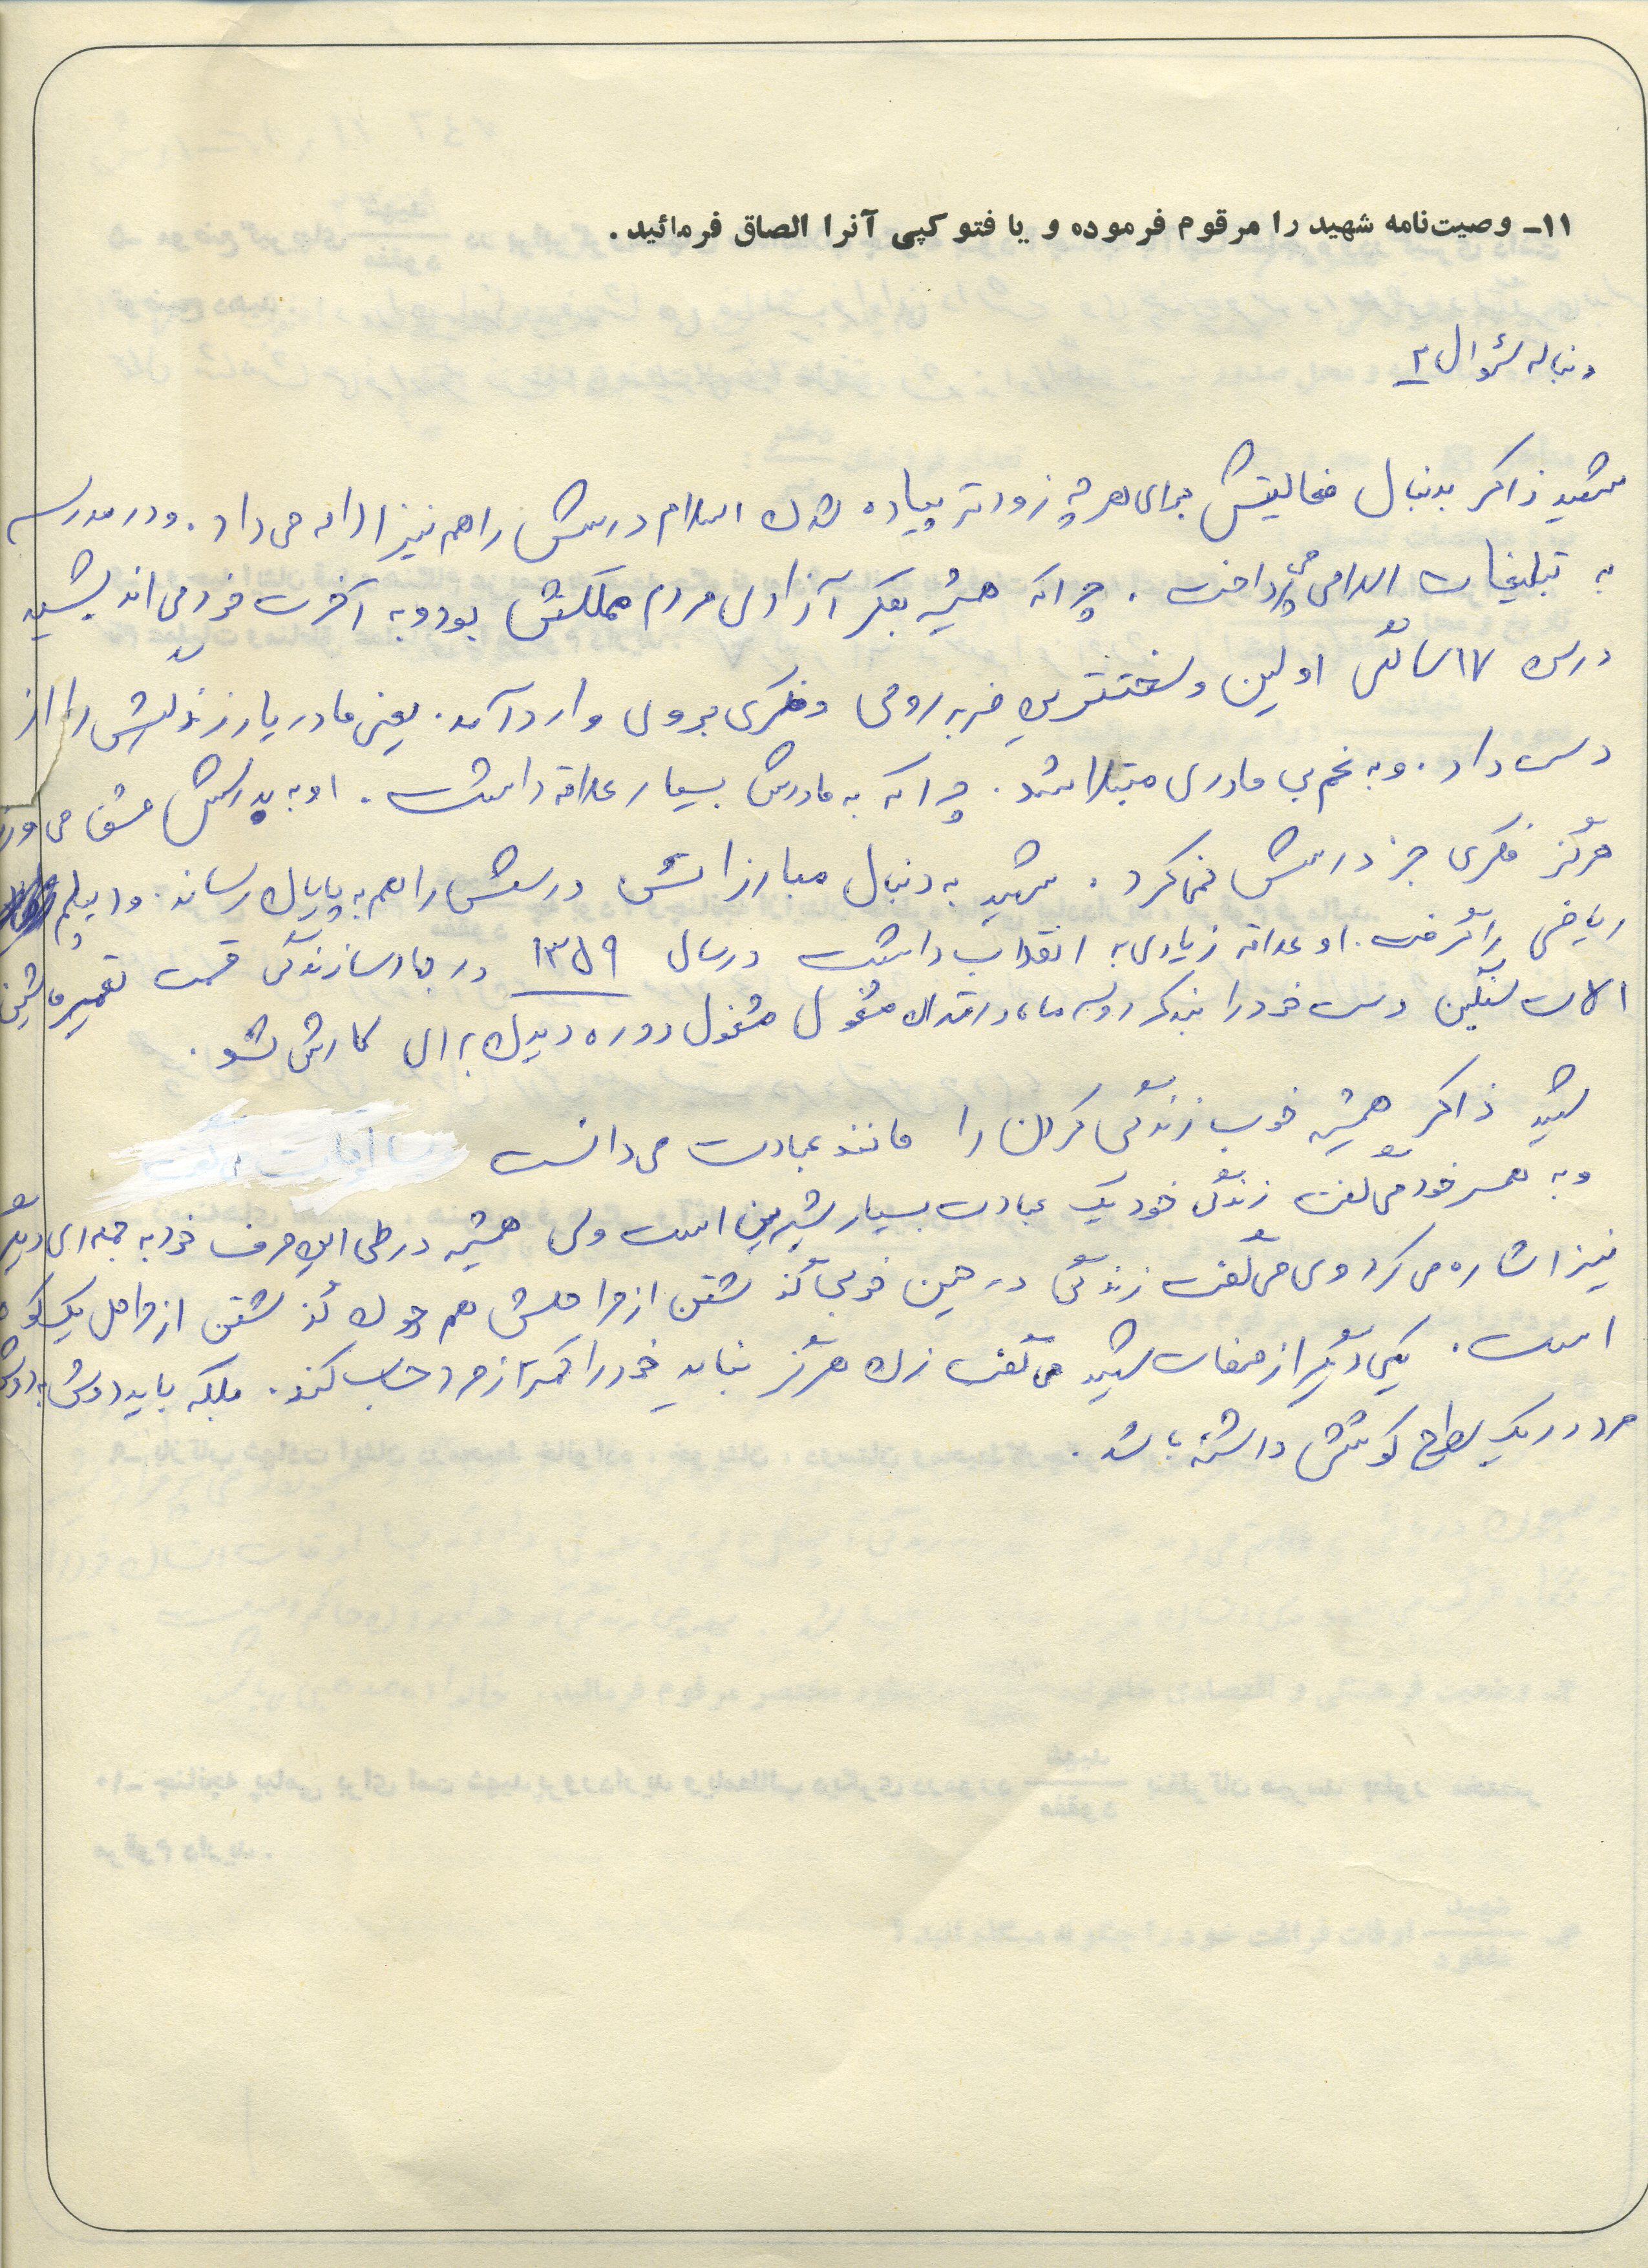 ۱۱ـ وصیت‌نامه شهید را مرقوم فرموده و یا فتوکپی آنرا الصاق فرمائید.
دنباله سؤال ۲
شهید ذاکر بدنبال فعالیتش برای هر چه زودتر پیاده شدن اسلام درسش را هم نیز ادامه می داد. و در مدرسه
به تبلیغات اسلامی می پرداخت. چرا که همیشه بفکر آزادی مردم مملکتش بود و به آخرت خود می اندیشید
در سن ۱۷ سالگی اولین و سختترین ضربه روحی و فکری بروی وارد آمد. یعنی مادر یار زندگیش را از
دست داد. و به غم بی مادری مبتلا شد. چرا که به مادرش بسیار علاقه داشت. او به پدرش عشق می ورزید
هرگز فکری جز درسش نمی کرد. شهید به دنبال مبارزاتش درسش را هم به پایان رساند. و دیپلم
ریاضی را گرفت. او علاقه زیادی به انقلاب داشت در سال ۱۳۵۹ در جهاد سازندگی قسمت تعمیر ماشین
آلات سنگین دست خود را بند کرد و سه ماه در مشغول مشغول دوره دیدن برای کارش شد.
شهید ذاکر همیشه خوب زندگی کردن را مانند عبادت می دانست
و به همسر خود می گفت زندگی خود یک عبادت بسیار شیرین است ولی همیشه در طی این حرف خود به جمله ای دیگر
نیز اشاره می کرد وی می گفت زندگی در عین خوبی گذشتن از مراحلش هم چون گذشتن از مراحل یک کوه
است. یکی دیگر از صفات شهید می گفت زن هرگز نباید خود را کمتر از مرد حساب کند. بلکه باید دوش به دوش
مرد در یک سطح کوشش داشته باشد.